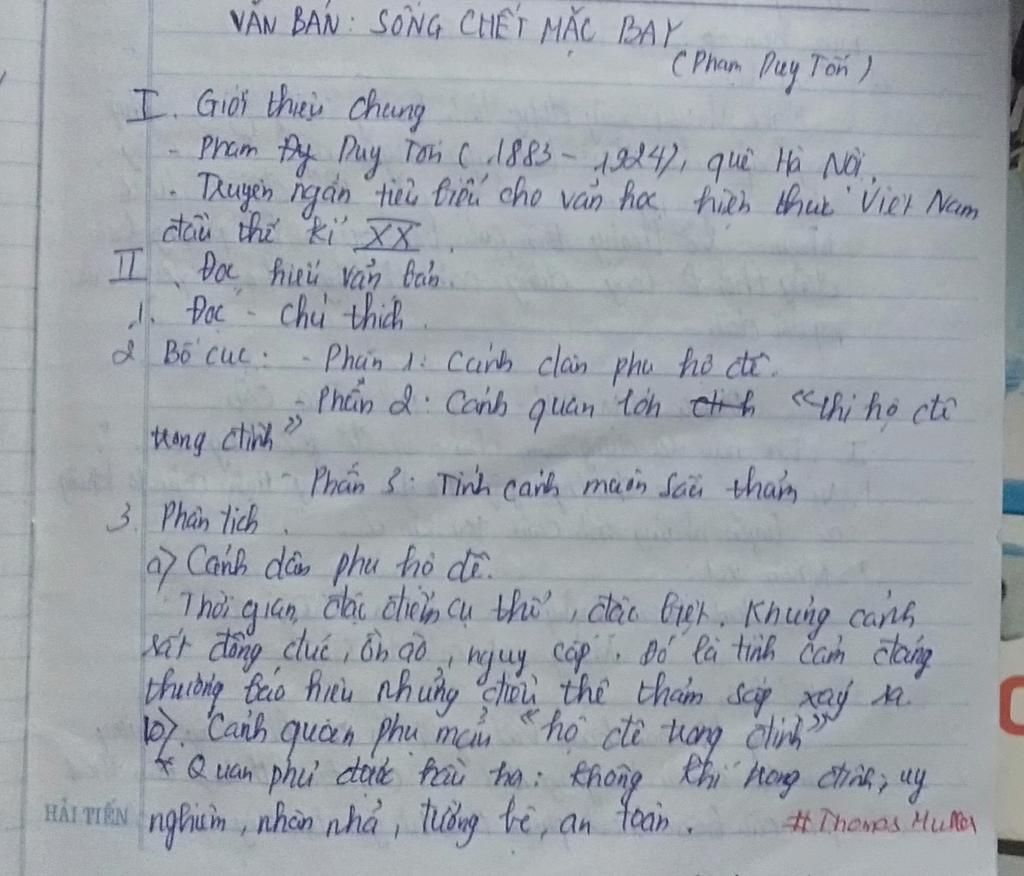 VĂN BẢN: SỐNG CHẾT MẶC BAY
(Phạm Duy Tốn)
I. Giới thiệu chung
- Phạm Duy Tốn (1883 - 1924), quê Hà Nội.
- Truyện ngắn tiêu biểu cho văn học hiện thực Việt Nam
đầu thế kỉ XX.
II. Đọc hiểu văn bản.
1. Đọc - chú thích.
2 Bố cục: - Phần 1: Cảnh dân phu hộ đê.
- Phần 2: Cảnh quan lớn "thi hộ đê
trong đình"
- Phần 3: Tình cảnh muôn sầu thảm
3. Phân tích.
a) Cảnh dân phu hộ đê.
Thời gian, địa điểm cụ thể, đặc biệt. Khung cảnh
rất đông đúc, ồn ào, nguy cấp. Đó là tình cảm đáng
thương báo hiệu những điều thê thảm sắp xảy ra.
b). Cảnh quan phụ mẫu "hộ đê trong đình"
* Quan phủ được hầu hạ: không khí trong đình, uy
nghiêm, nhàn nhã, đường bệ, an toàn.
HẢI TIẾN
#Thomas Muller